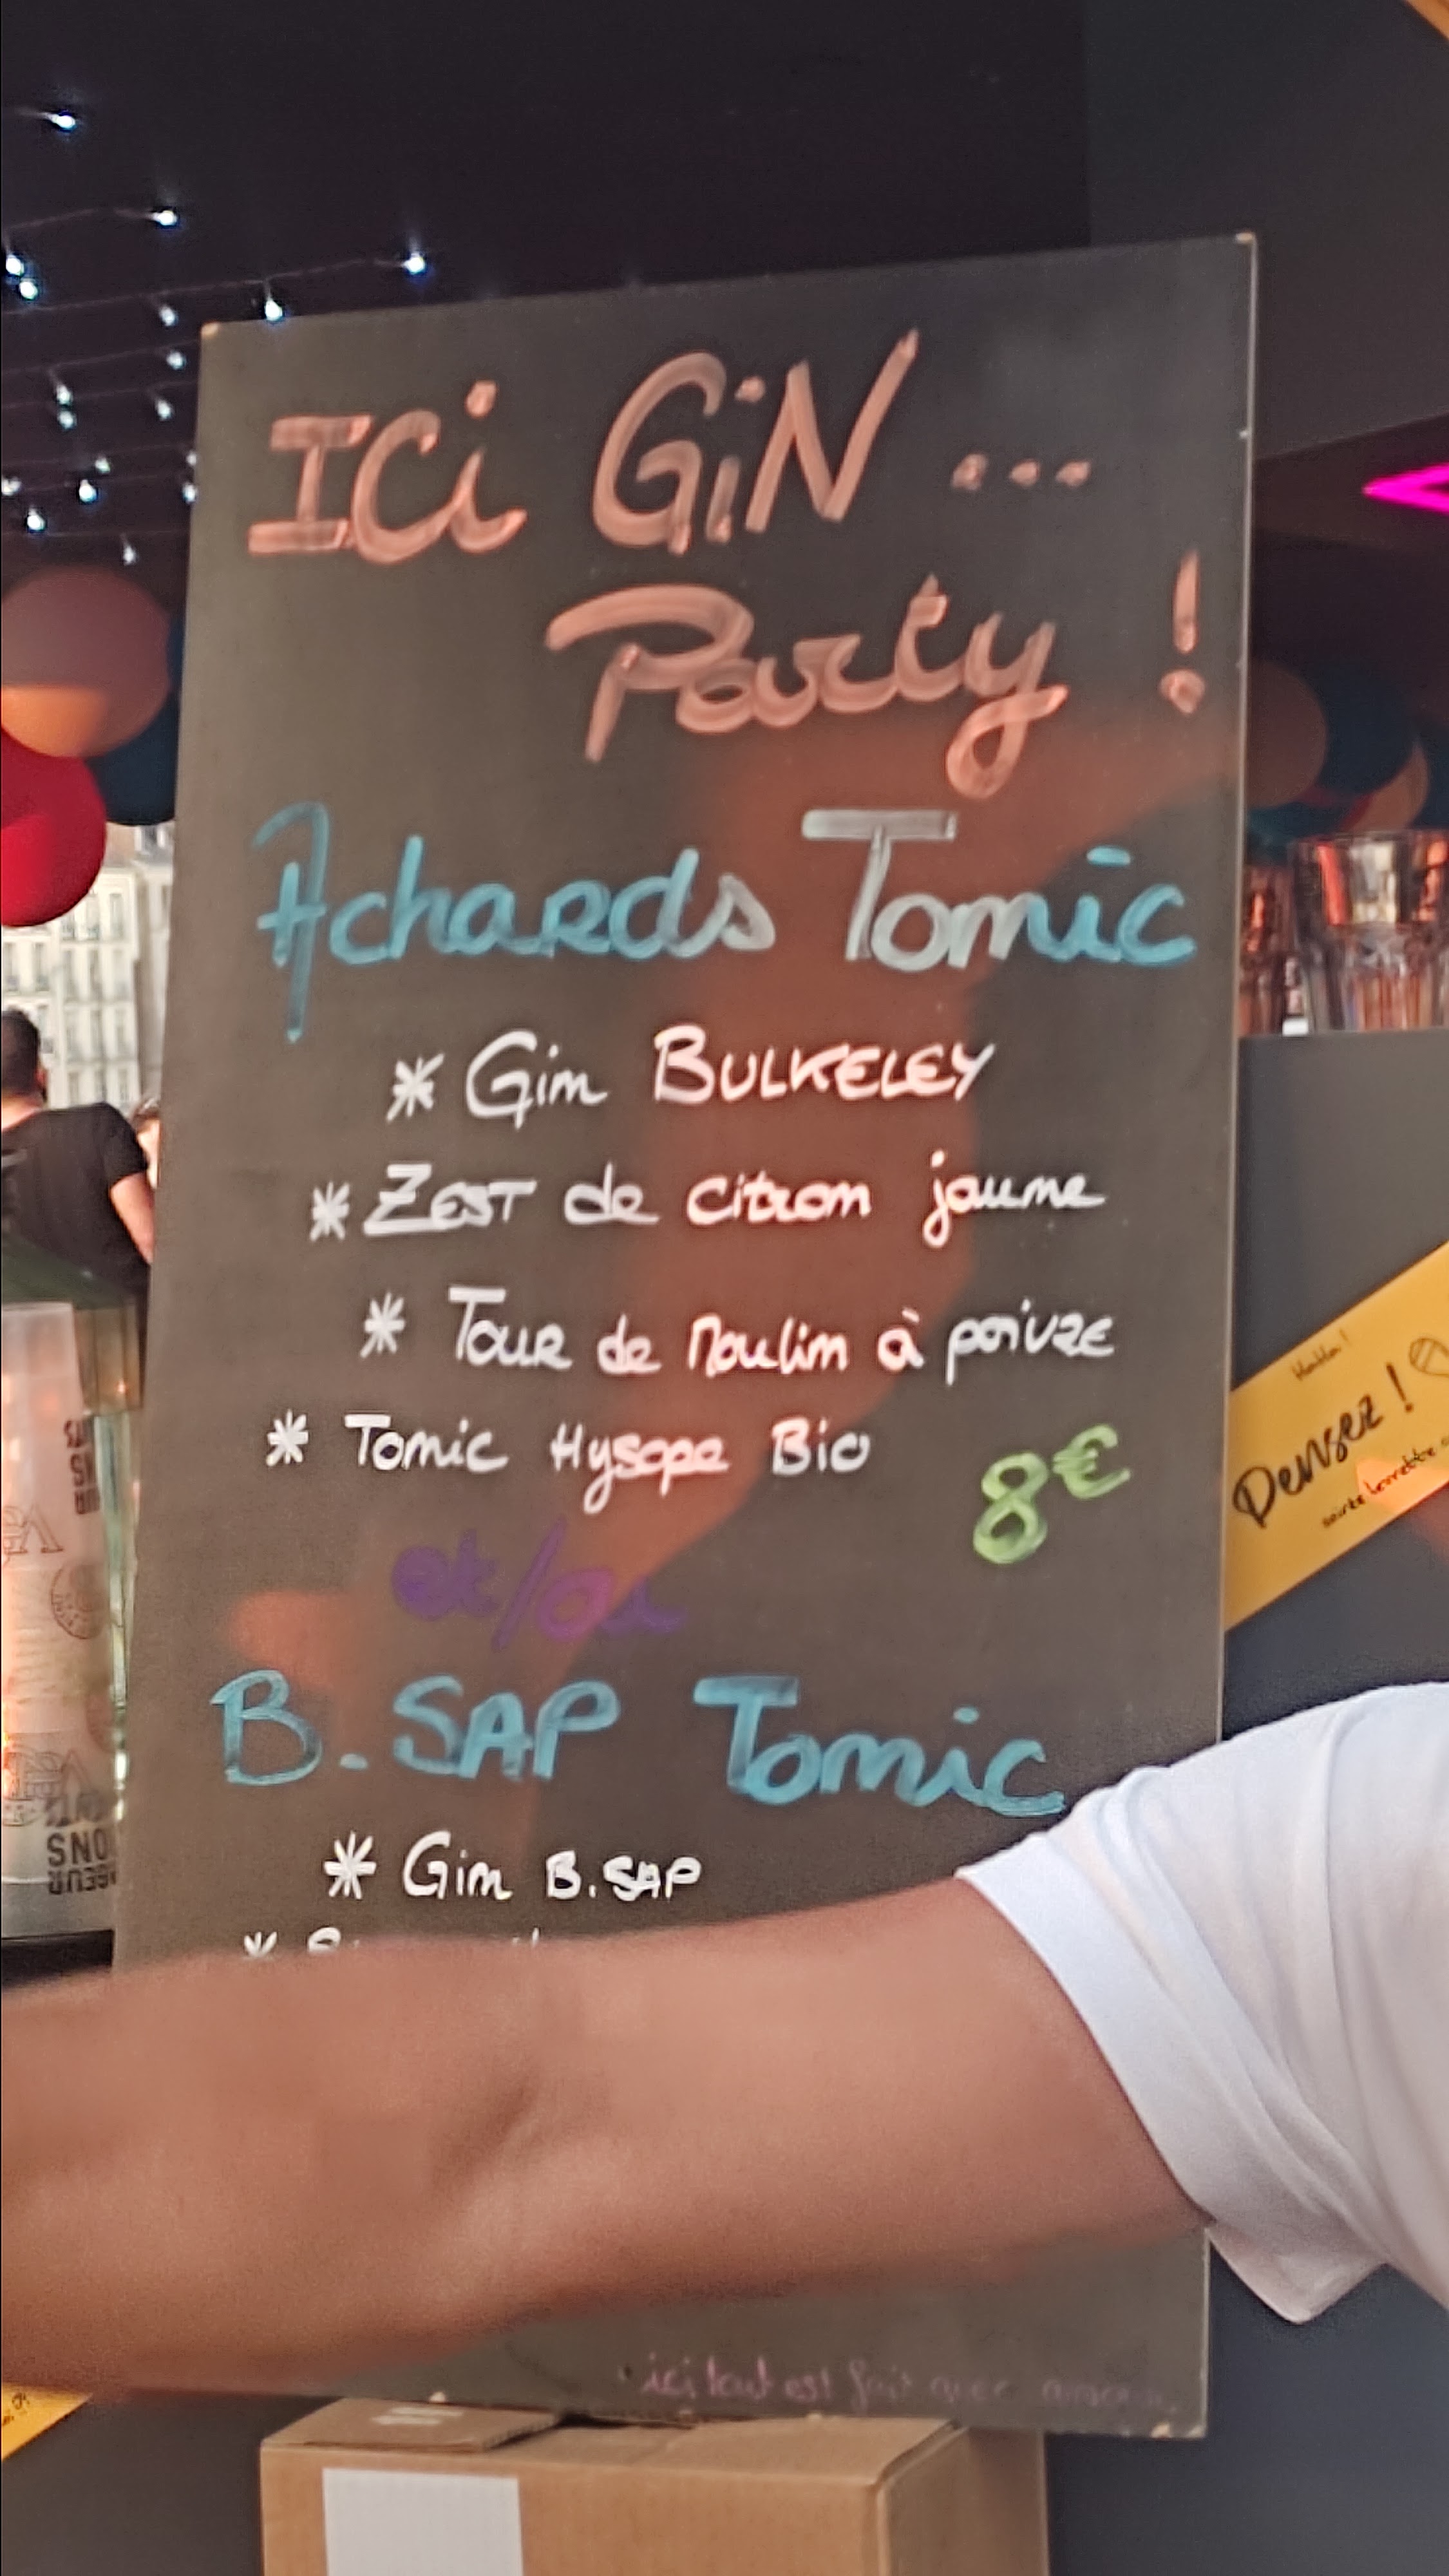 ICi GiN ...
Party !
Achards Tonic
* Gin BULKELEY
* ZEST de citron jaune
* Tour de Moulin à poivre
* Tonic Hysope Bio
8€
et/ou
B.SAP Tonic
* Gin B.SAP
ici tout est fait avec amour
Dansez !